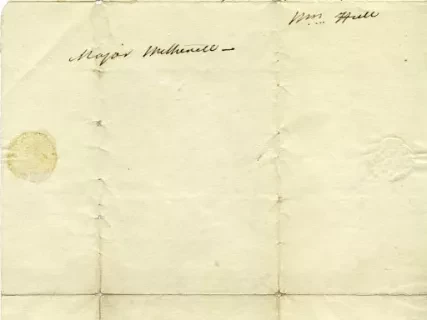 Wm Hull
Major Witherell